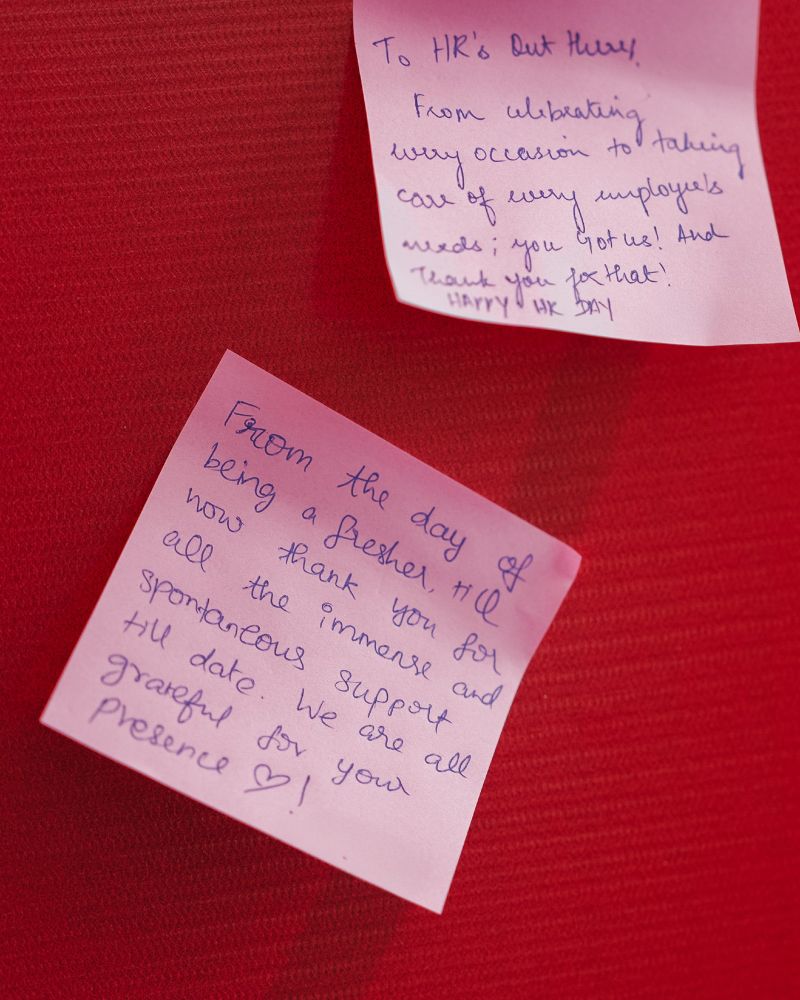 To HR's Out there,
From celebrating
every occasion to taking
care of every employee's
needs; you Got us! And
Thank you for that!
HAPPY HR DAY
From the day of
being a fresher, till
now thank you for
all the immense and
spontaneous support
till date. We are all
grateful for your
presence ♡!